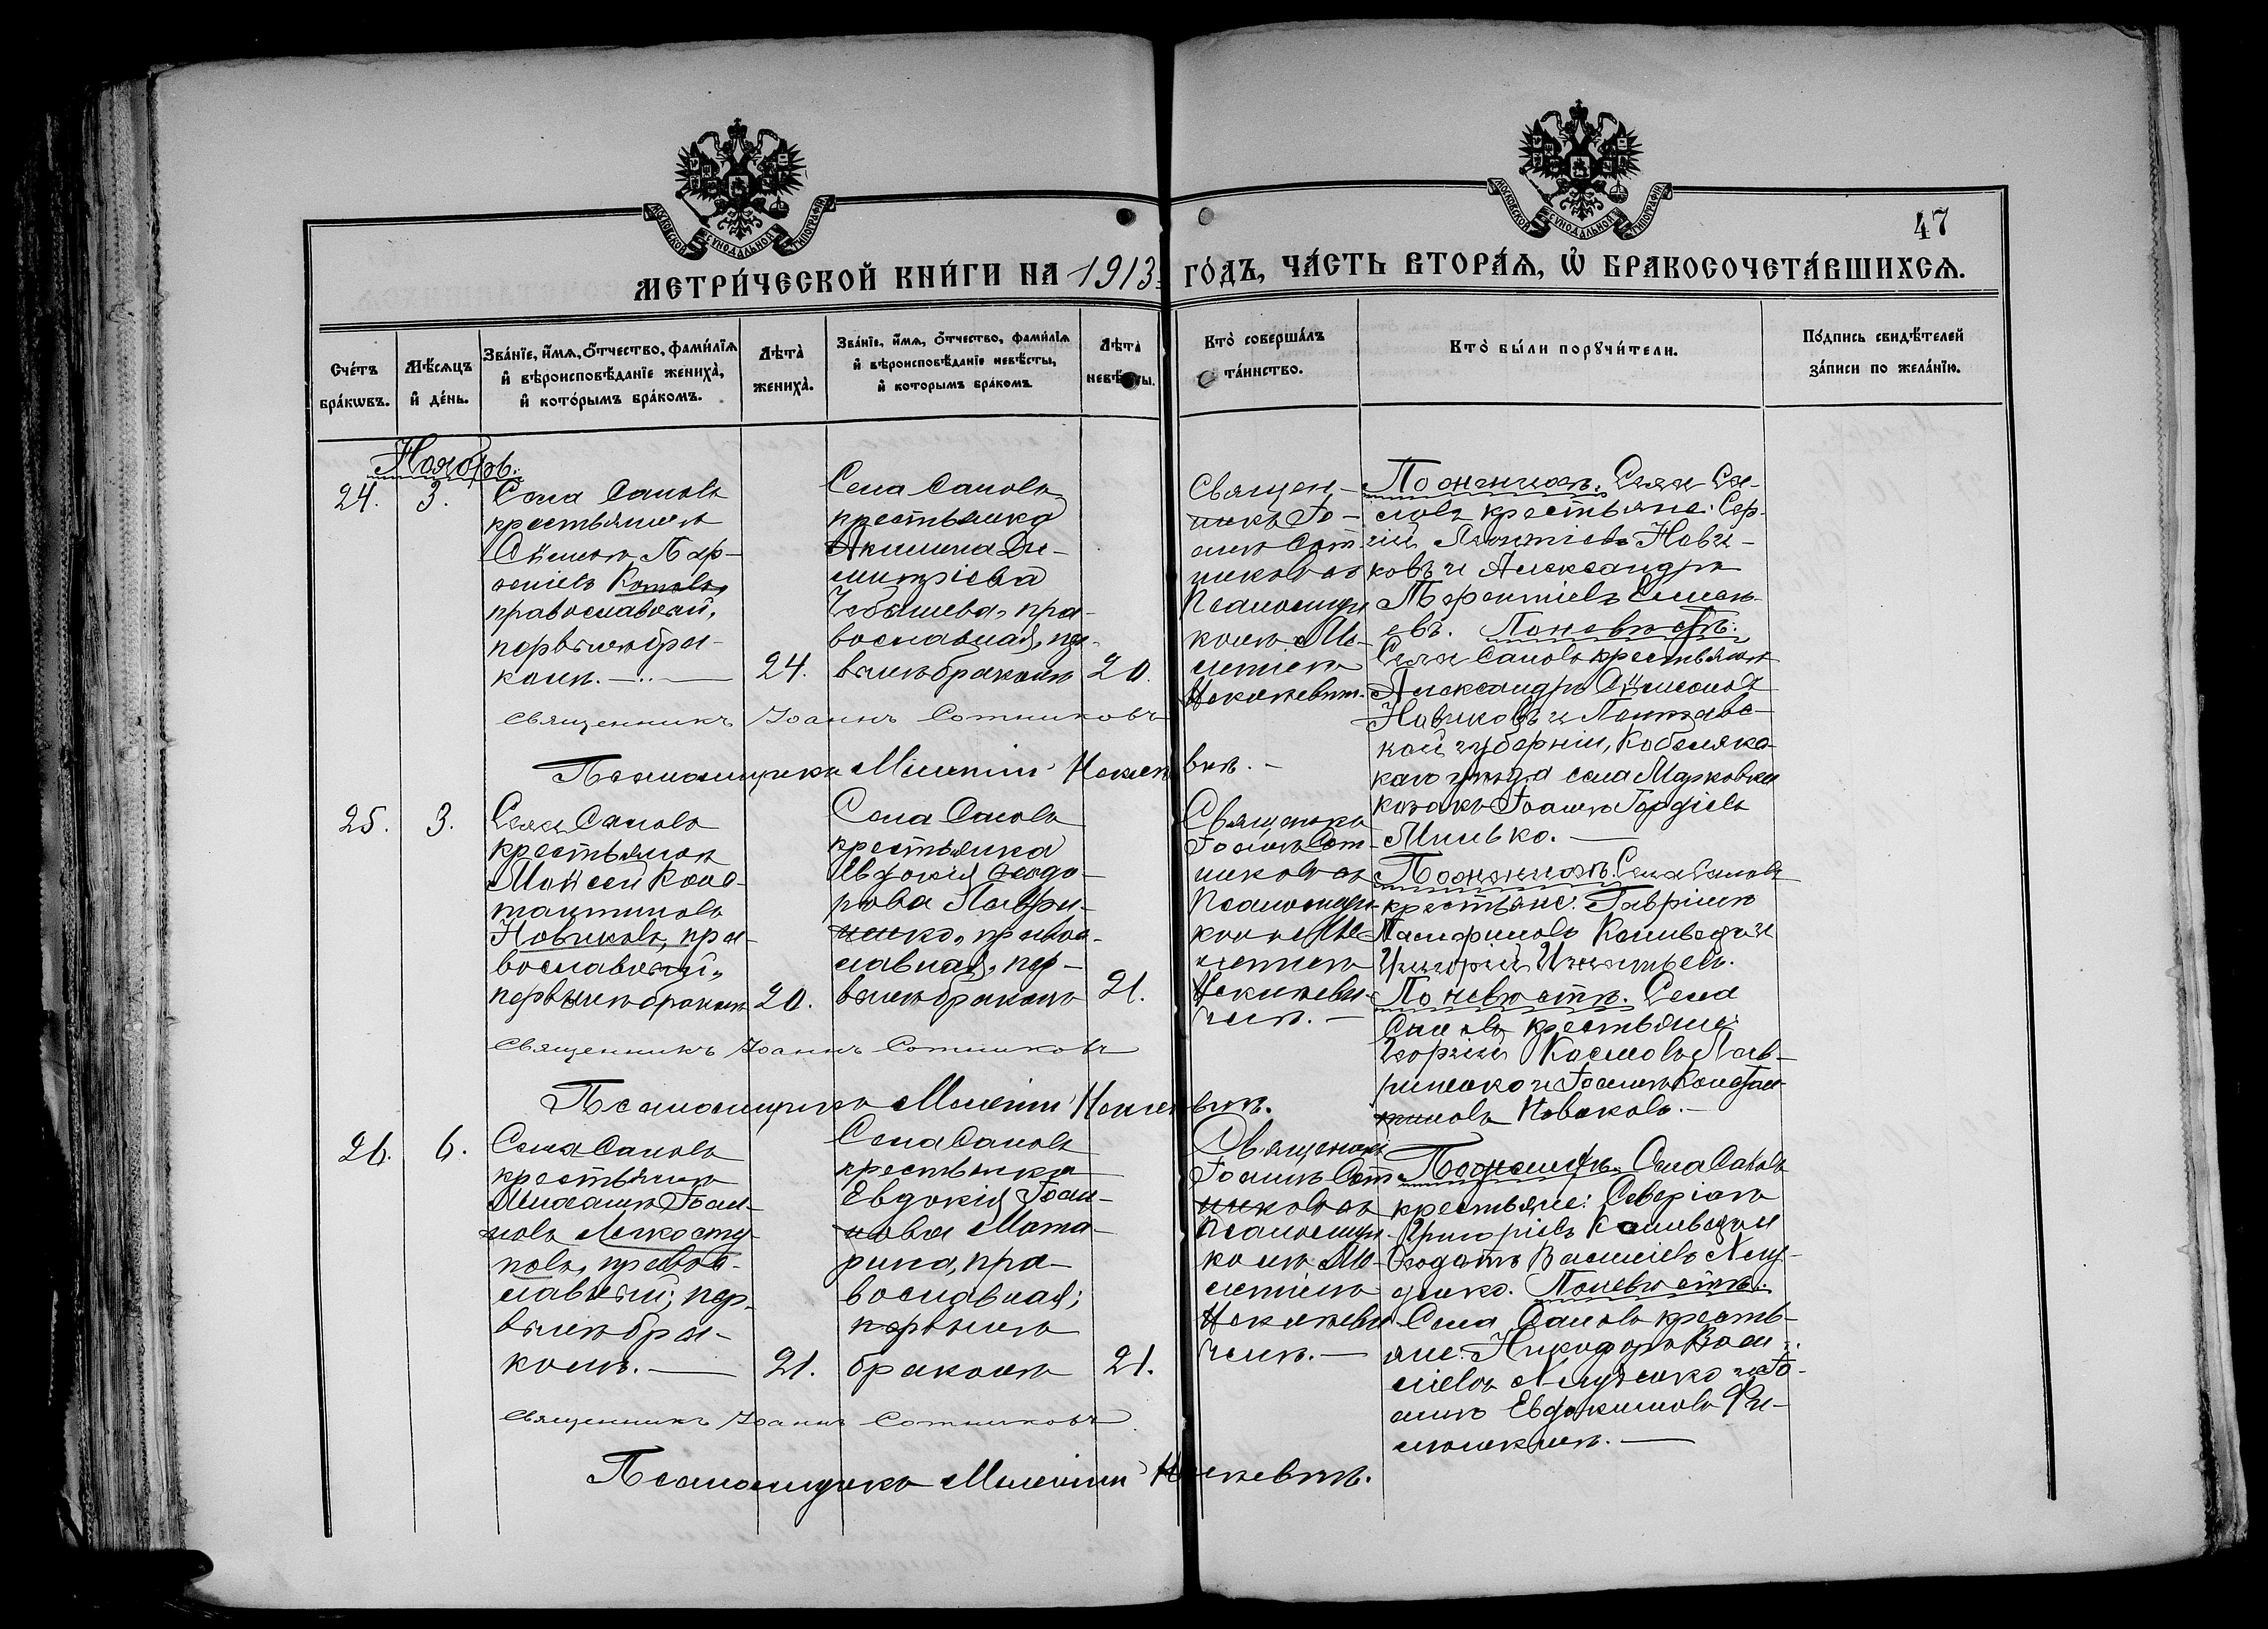 МОСКОВСКОЙ СѴНОДАЛЬНОЙ ТИПОГРАФІИ
МОСКОВСКОЙ СѴНОДАЛЬНОЙ ТИПОГРАФІИ
47
МЕТРИ́ЧЕСКОЙ КНИ́ГИ НА 1913 ГО́ДЪ, ЧА́СТЬ ВТОРА́Ѧ, Ѡ҆ БРАКОСОЧЕТА́ВШИХСѦ.
Сче́тъ
бра́кѡвъ.
Мѣ́сѧцъ
и҆ де́нь.
Зва́нїе, и҆́мѧ, ѻ҆́тчество, фами́лїѧ
и҆ вѣроисповѣ́данїе жениха̀,
и҆ кото́рымъ бра́комъ.
Лѣта̀
жениха̀.
Зва́нїе, и҆́мѧ, ѻ҆́тчество, фами́лїѧ
и҆ вѣроисповѣ́данїе невѣ́сты,
и҆ которымъ бра́комъ
Лѣта̀
невѣ́сты.
Кто̀ соверша́лъ
та́инство.
Кто̀ бы́ли порꙋчи́тели.
По́дпись свидѣ́телей
за́писи по жела́нїю.
Ноябрь.
24.
3.
Села Санова
крестьянинъ
Сѵмеонъ Пар-
ѳеніевъ
православный,
первымъ бра-
комъ.
24.
Села Санова
крестьянка
Акилина Ди-
митріева
Чебышева, пра-
вославная, пер-
вымъ бракомъ
20.
Священ-
никъ Іо-
аннъ Сот-
никовъ съ
Псаломщи-
комъ Ме-
летіемъ
По женихѣ: Села Са-
нова крестьяне: Сер-
гій Леонтіевъ Нови-
ковъ и Александръ
Терентіевъ Семен-
евъ. По невѣстѣ:
Села Санова крестьянинъ
Александръ Сѵмеоновъ
Новиковъ и Полтавс-
кой губерніи, Кобеляк-
каго уѣзда села Марковки
козакъ Іоаннъ Гордіевъ
Минько.
Священникъ Іоаннъ Сотниковъ
Псаломщикъ Мелетій
25.
3.
Села Санова
крестьянинъ
Моѵсей Конс-
тантиновъ
Новиковъ, пра-
вославный,
первымъ бракомъ
20.
Села Санова
крестьянка
Евдокія Ѳеодо-
рова Лаври-
ненко, правос-
лавная, пер-
вымъ бракомъ
21.
Священникъ
Іоаннъ Сот-
никовъ съ
Псаломщи-
комъ Ме-
летіемъ
По женихѣ: Села Санова
крестьяне: Гавріилъ
Памфиловъ и
Григорій
По невѣстѣ: Села
Санова крестьяне:
Георгій Космовъ Лав-
риненко и Іоаннъ Констан-
тиновъ Новиковъ.
Священникъ Іоаннъ Сотниковъ
Псаломщикъ Мелетій
26.
6.
Села Санова
крестьянинъ
Михаилъ Іоан-
новъ Легкосту-
повъ, правос-
лавный; пер-
вымъ бра-
комъ.
21.
Села Санова
крестьянка
Евдокія Іоан-
нова Мата-
рина, пра-
вославная;
первымъ
бракомъ
21.
Священникъ
Іоаннъ Сот-
никовъ съ
Псаломщи-
комъ Ме-
летіемъ
По женихѣ: Села Санова
крестьяне: Северіанъ
Григоріевъ и
Ѳеодотъ Василіевъ
По невѣстѣ:
Села Санова кресть-
яне: Никифоръ Васи-
ліевъ и Іо-
аннъ Евдокимовъ Фи-
Священникъ Іоаннъ Сотниковъ
Псаломщикъ Мелетій